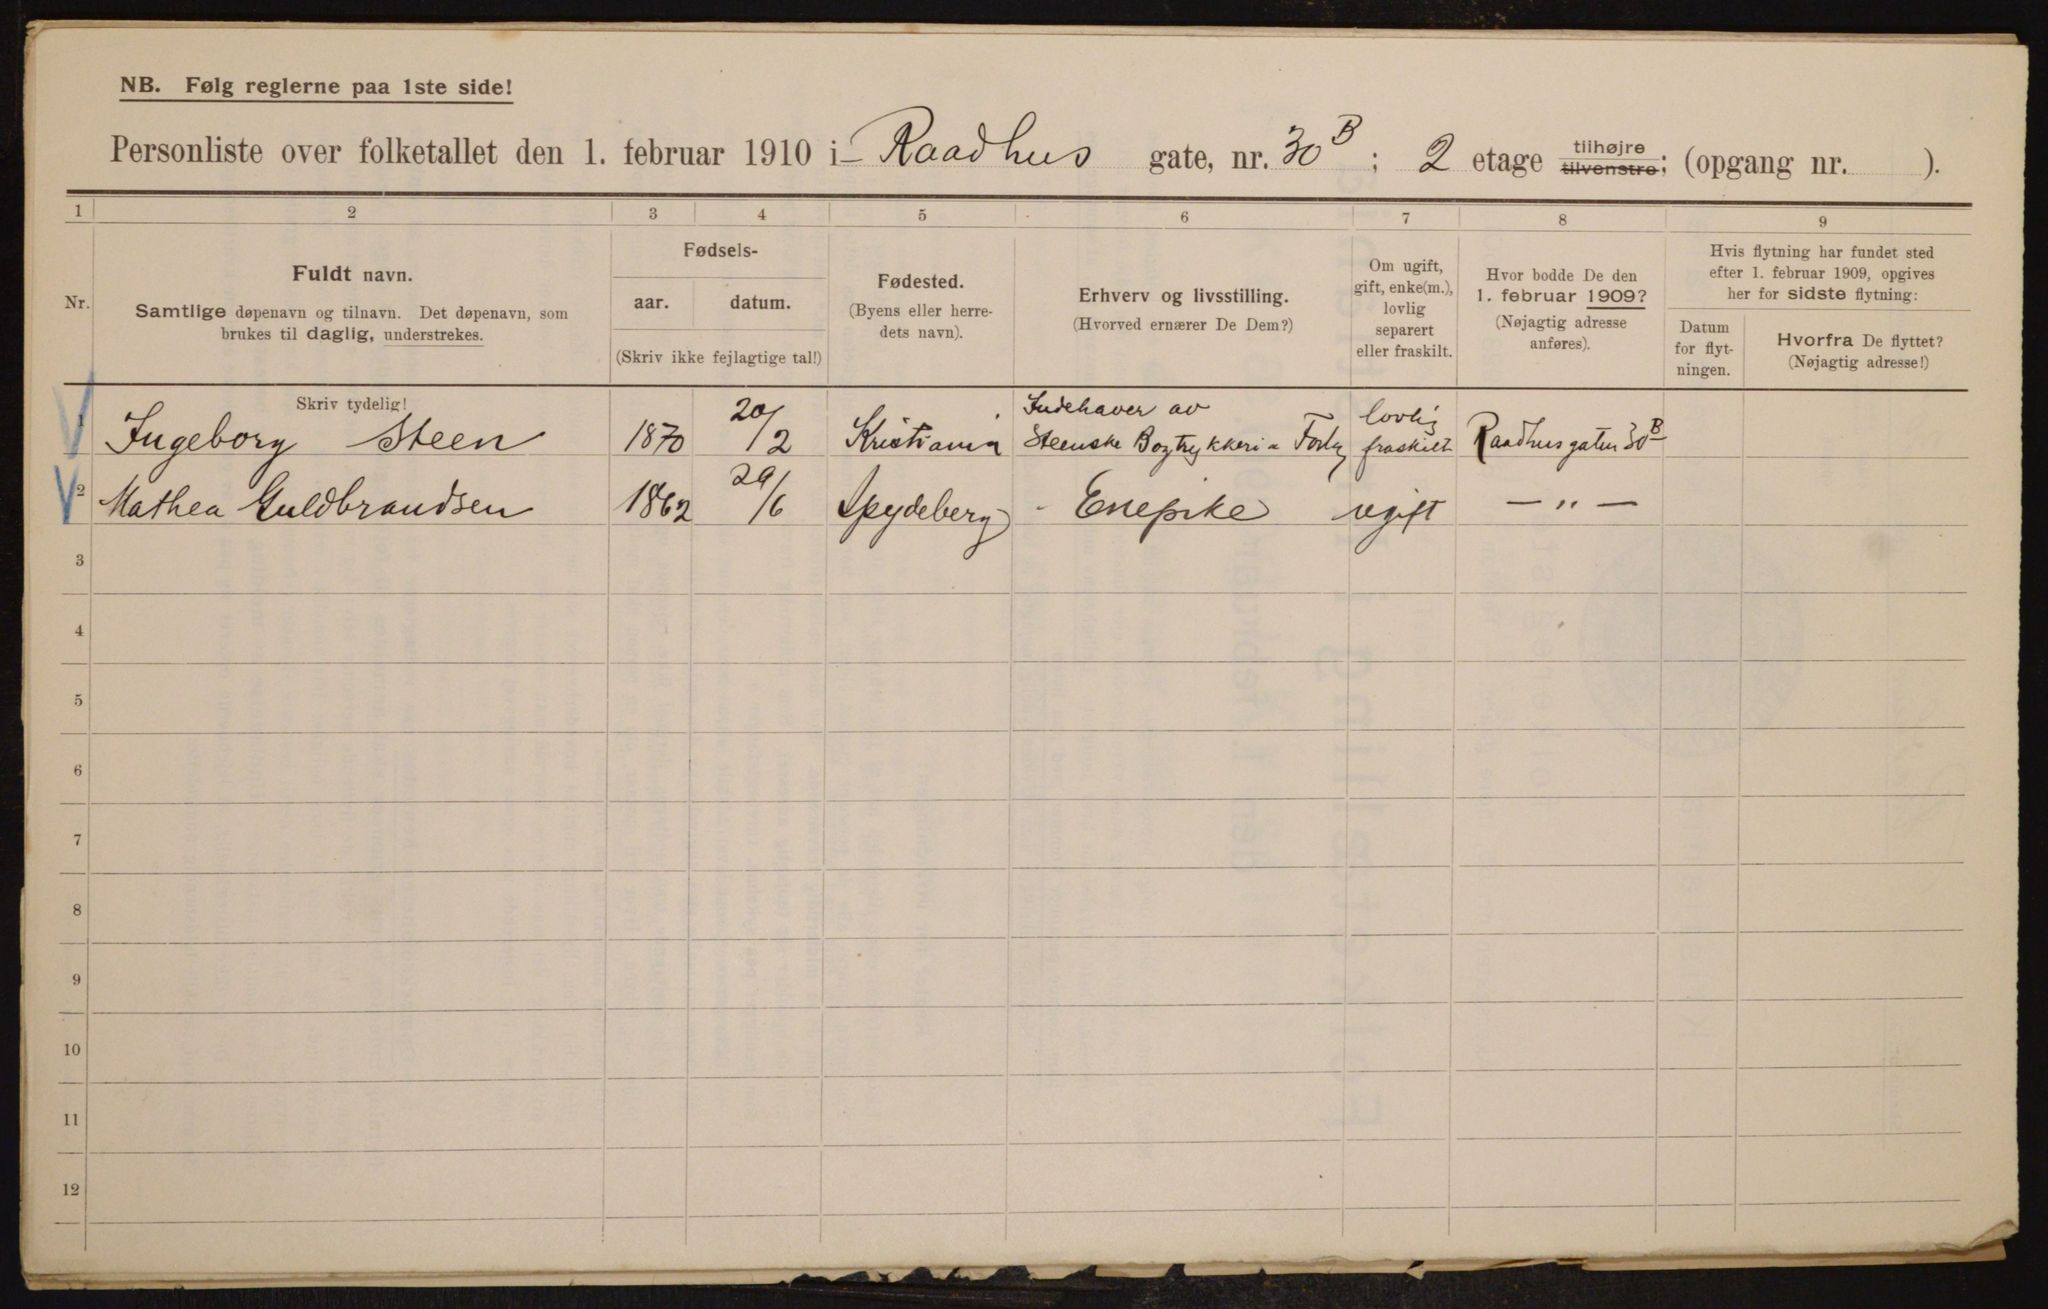 NB. Følg reglerne paa 1ste side!
Personliste over folketallet den 1. februar 1910 i Raadhus gate, nr. 30 B ; 2 etage tilhøjre tilvenstre; (opgang nr. ).
1 2 3 4 5 6 7 8 9
Nr.
Fuldt navn.
Samtlige døpenavn og tilnavn. Det døpenavn, som
brukes til daglig, understrekes.
Fødsels-
aar. datum.
(Skriv ikke fejlagtige tal!)
Fødested.
(Byens eller herre-
dets navn).
Erhverv og livsstilling.
(Hvorved ernærer De Dem?)
Om ugift,
gift, enke(m.),
lovlig
separert
eller fraskilt.
Hvor bodde De den
1. februar 1909?
(Nøjagtig adresse
anføres).
Hvis flytning har fundet sted
efter 1. februar 1909, opgives
her for sidste flytning:
Datum
for flyt-
ningen.
Hvorfra De flyttet?
(Nøjagtig adresse!)
Skriv tydelig!
1 Ingeborg Steen 1870 20/2 Kristiania Indehaver av Steenske Bogtrykkeri lovlig fraskilt Raadhusgaten 30 B
2 Mathea Guldbrandsen 1862 29/6 Spydeberg Enepike ugift — " —
3
4
5
6
7
8
9
10
11
12